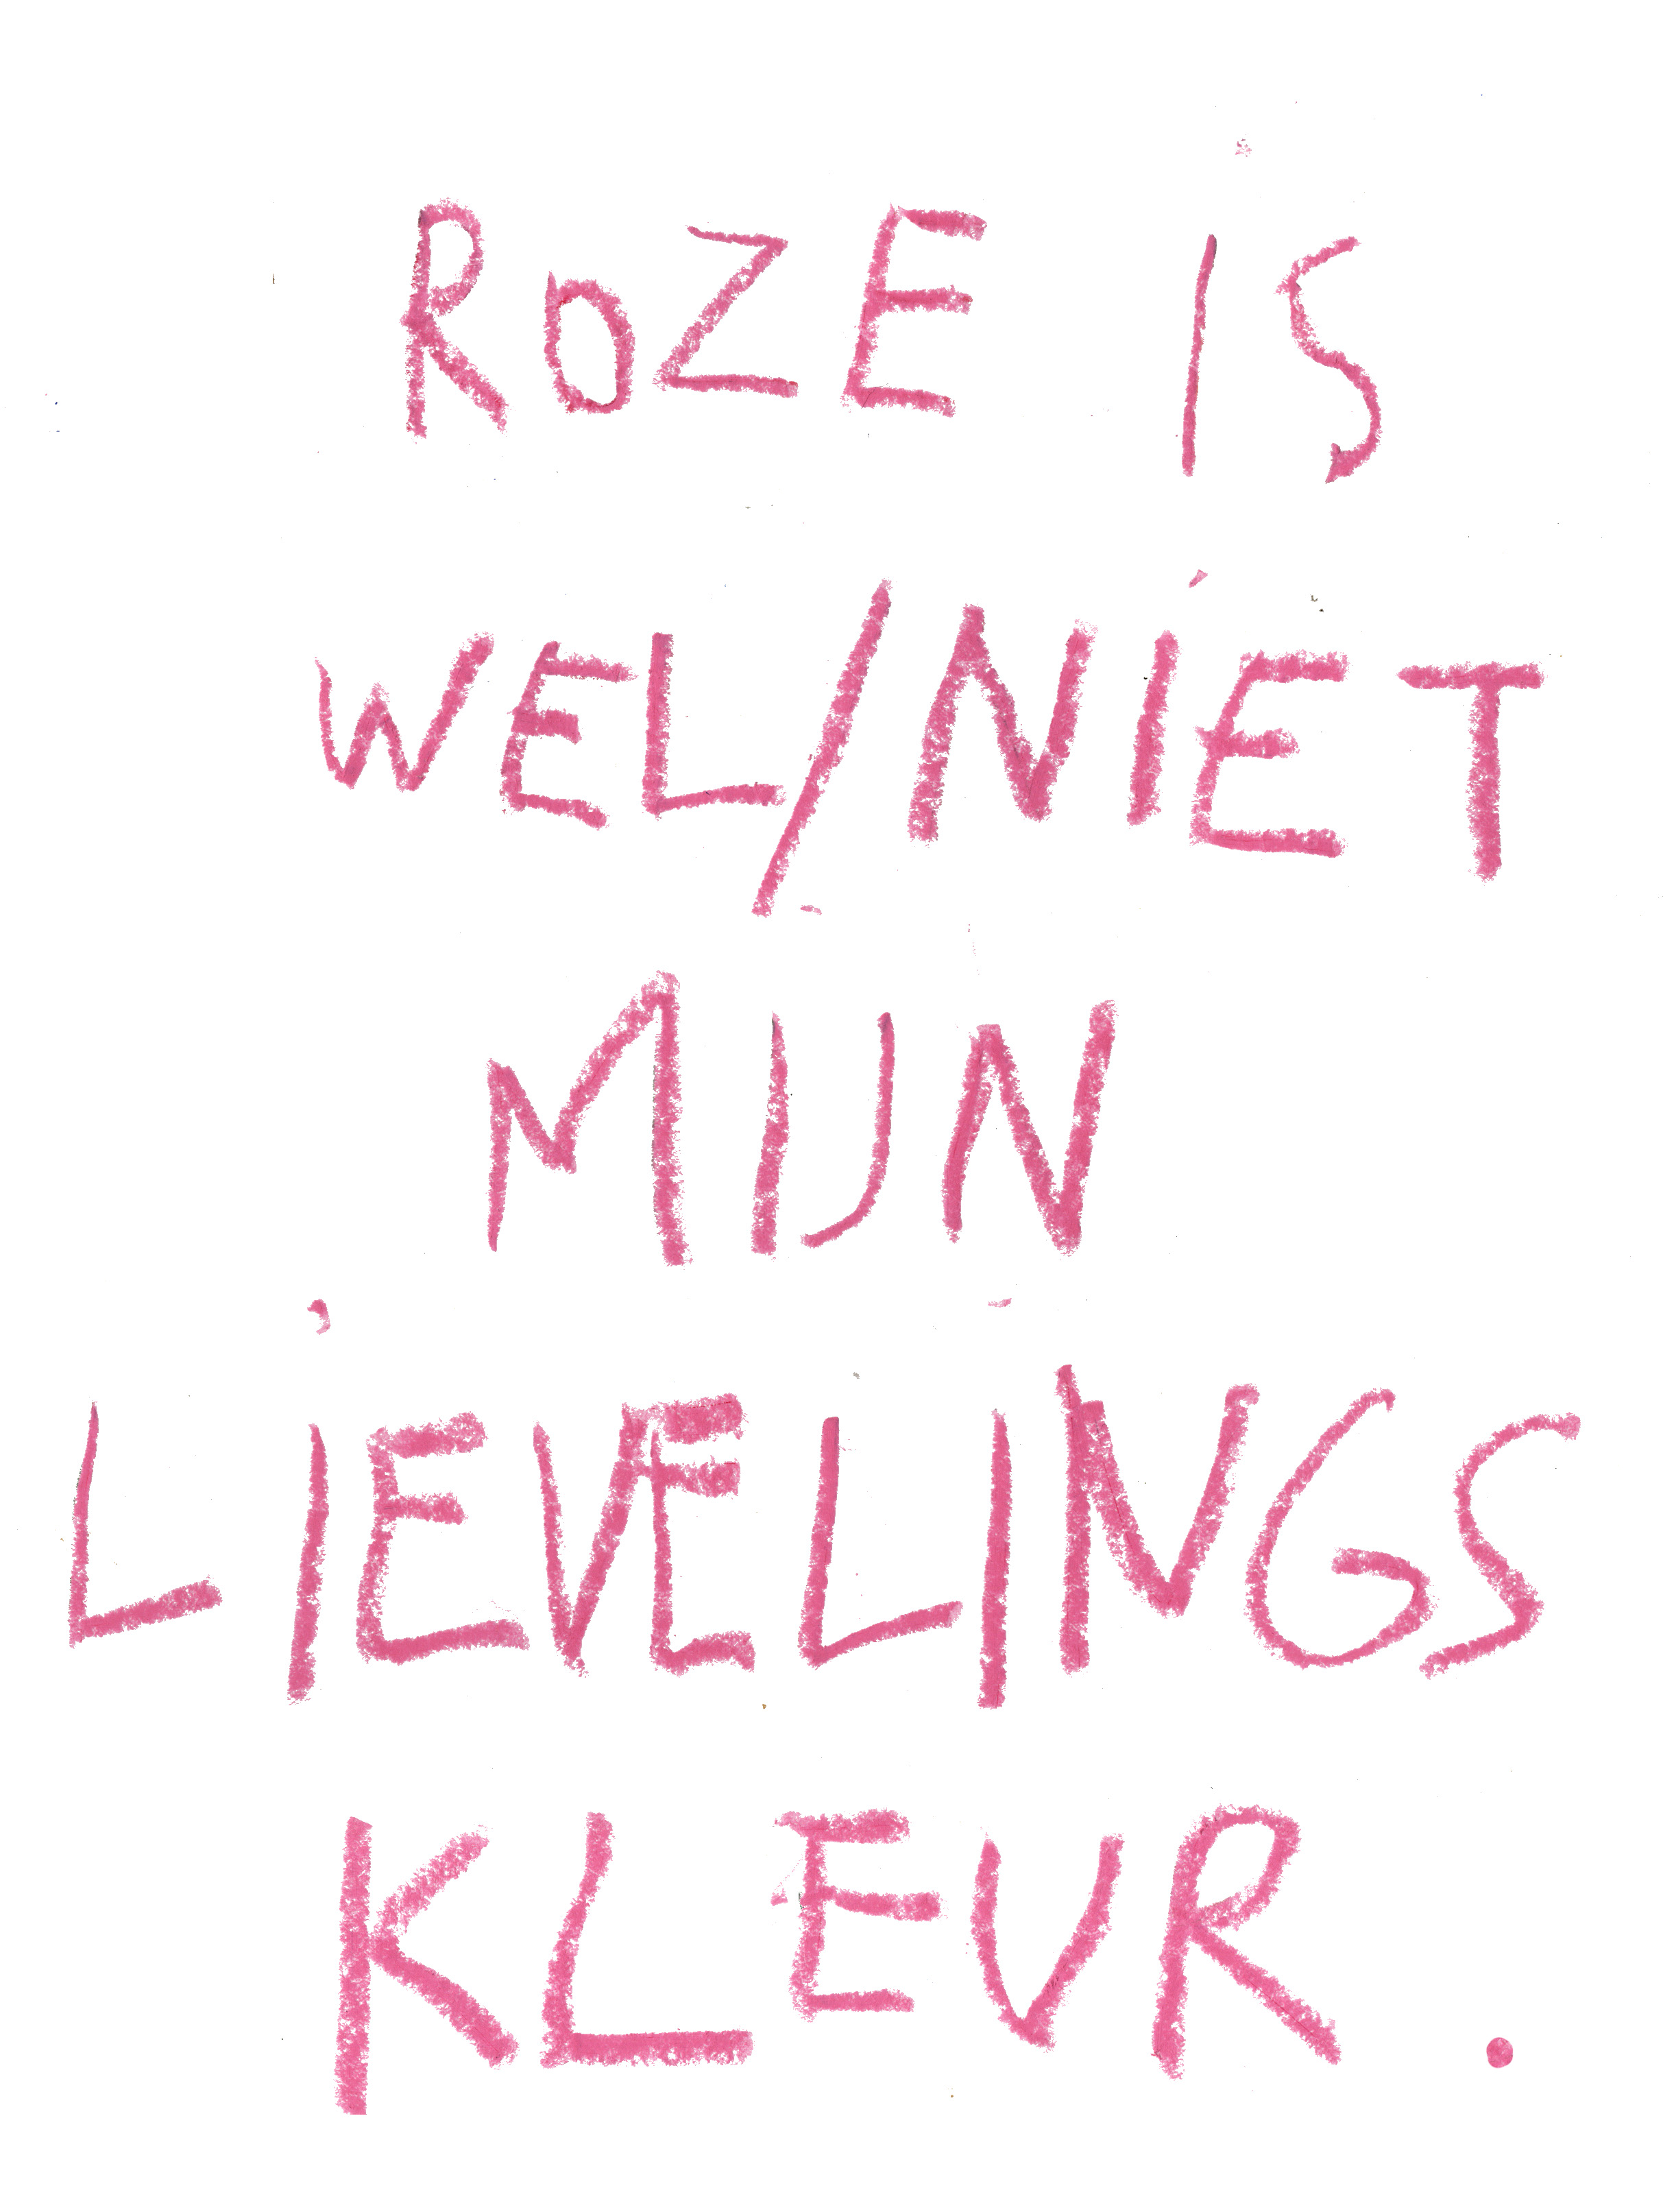 ROZE IS
WEL/NIET
MIJN
LIEVELINGS
KLEUR.